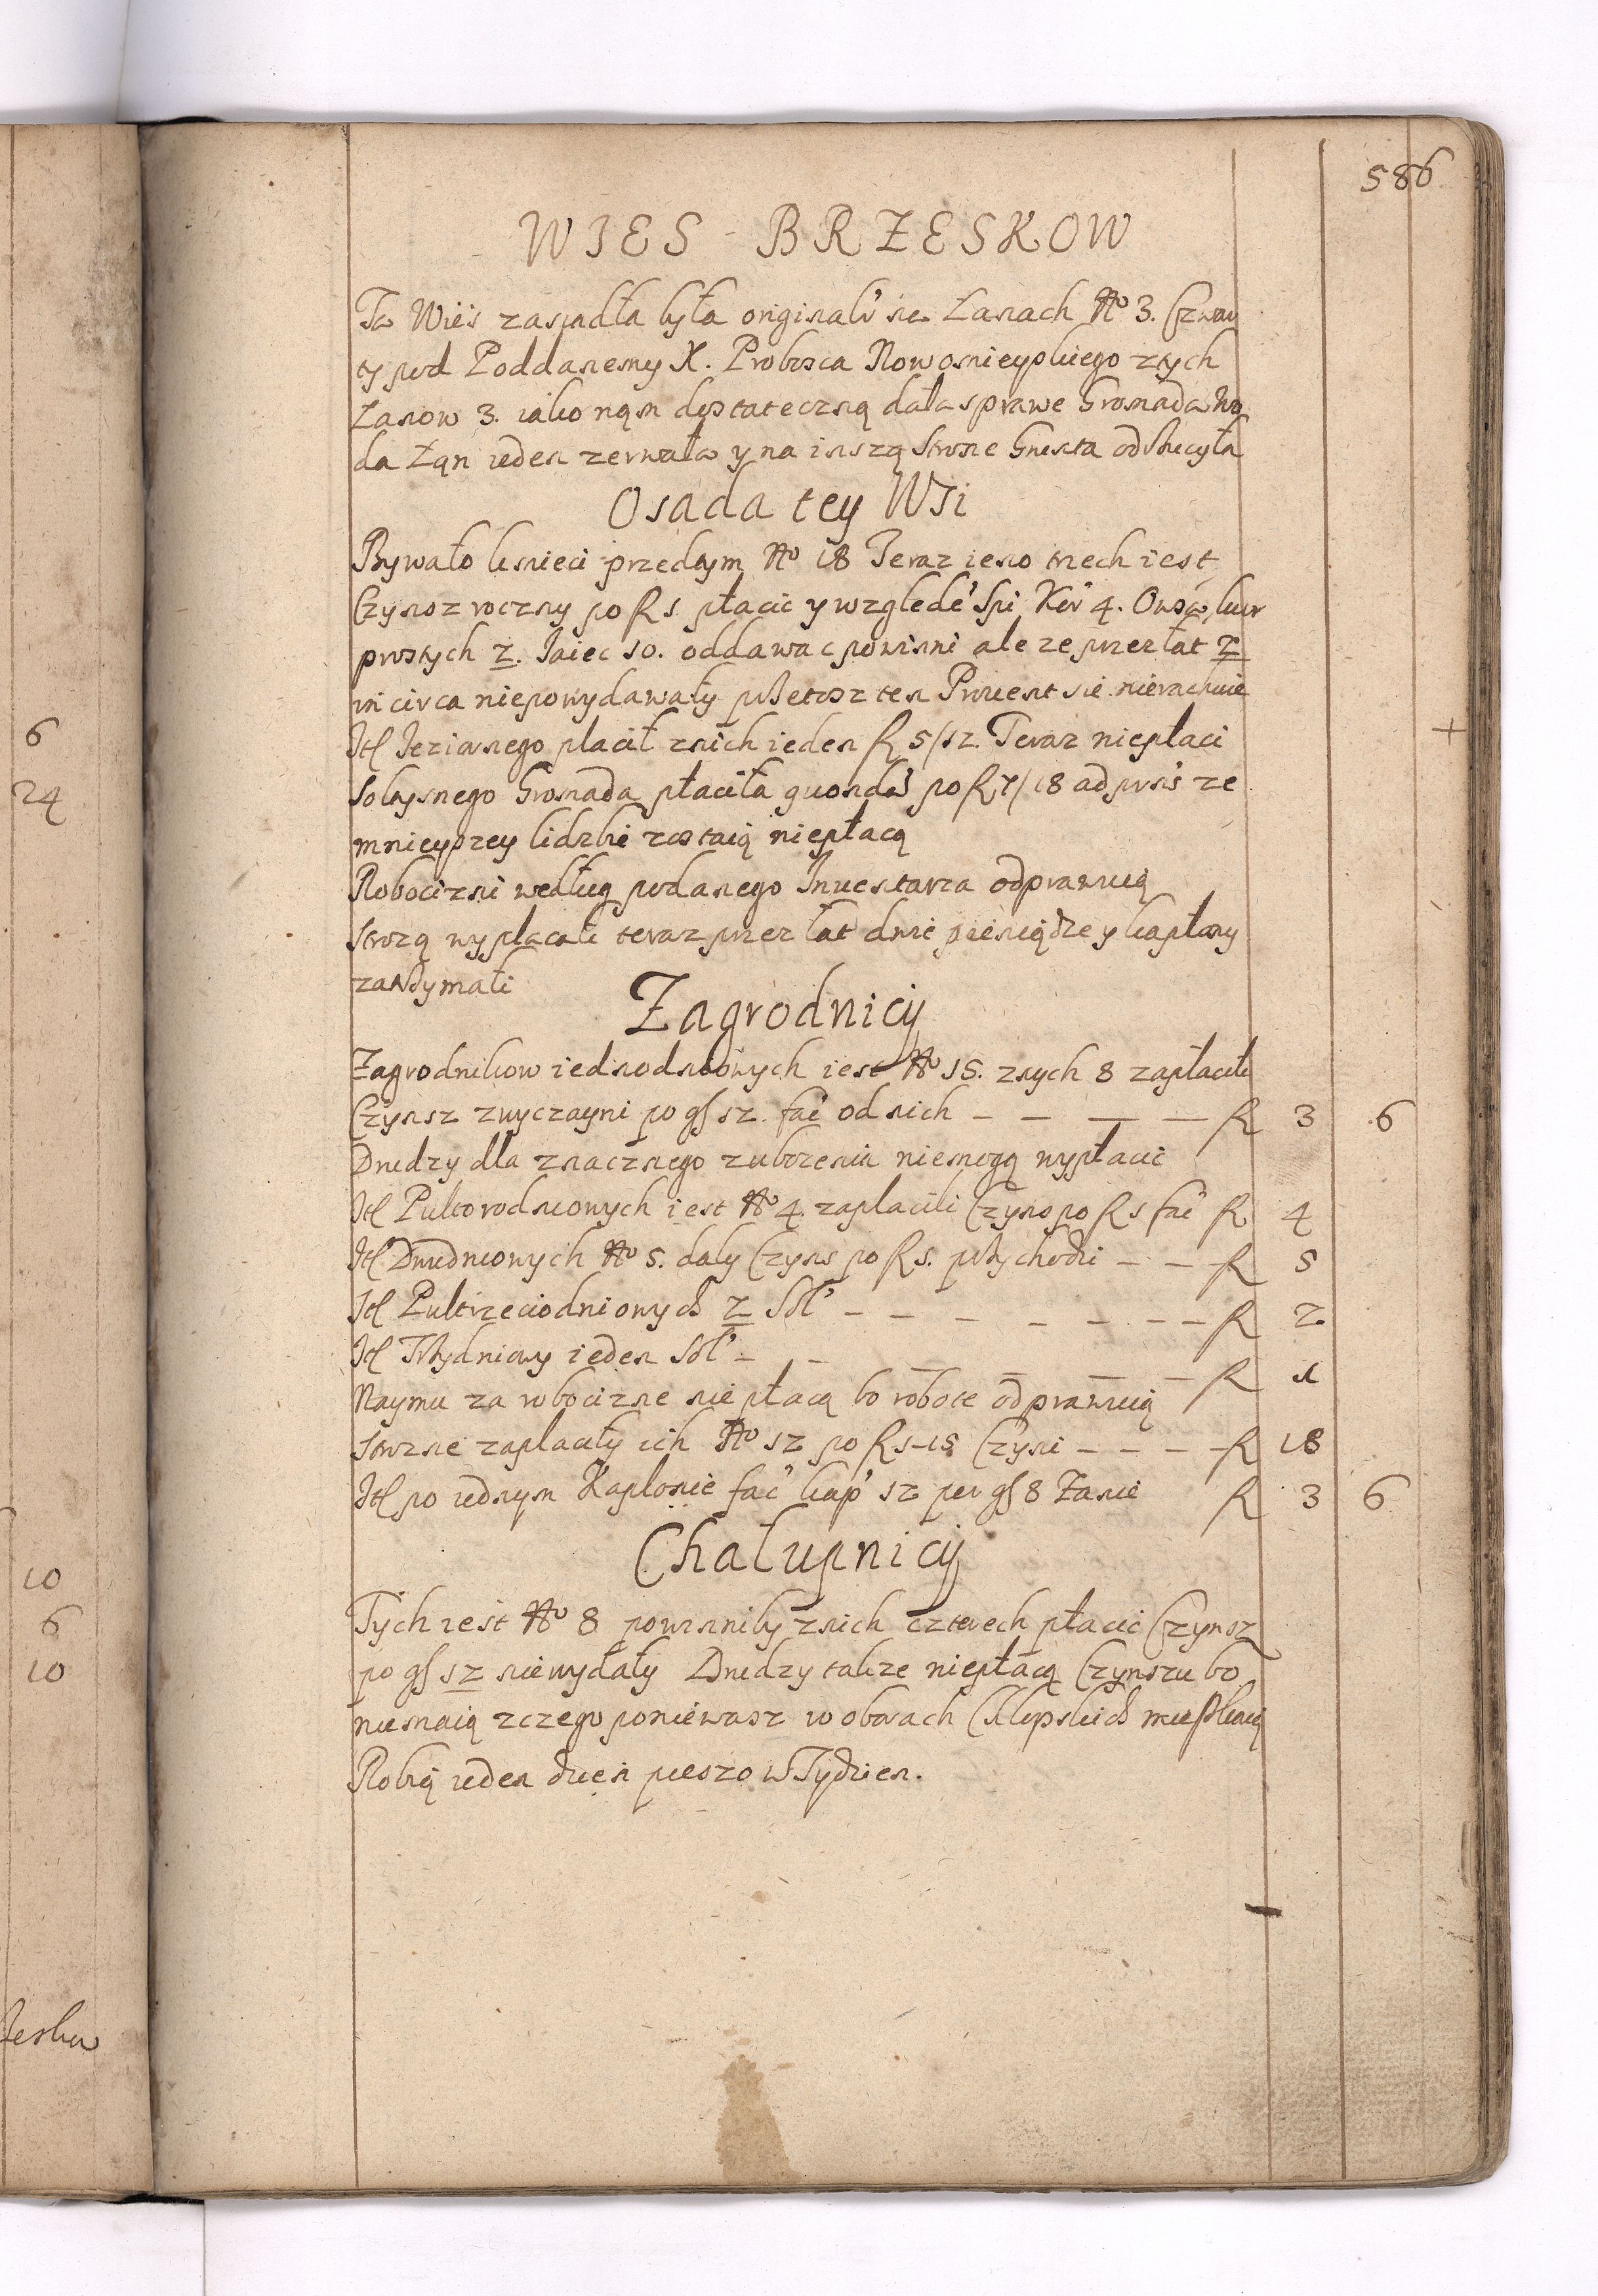 586
WIES BRZESKOW
Ta Wieś zasiadła była original' na Łanach No 3. Czwar
ty pod Poddanemy X. Probosca Nowomieyskiego z tych
Łanow 3. iako nąm dostateczną dała sprawe Gromada Wo
da Łąn ieden zerwała y na inszą strone Gruntu odrzucyła
Osada tey WSi
Bywało kmieci przedtym No 18 Teraz ieno trzech iest
Czynsz roczny po R 1 płacic y wzglede' Spi Kor 4. Owsa, kur
prostych 2. Iaiec 10. oddawac powinni ale ze przez lat 2
in circa niepowydawały przetosz ten Prouent sie nierachuie
Jtl Jeziornego placił znich ieden R 5/12. Teraz niepłaci
Gromada płaciła quonda' po R 7/18 ad prns' ze
mnieyszey lidzbie zostaią niepłacą
Robocizni według podanego Inuentarza odprawuią
Strozą wypłacali teraz przez lat dwie pieniądze y kapłony
zatrzymali
Zagrodnicÿ
Zagrodnikow iednodniowych iest No 15. znych 8 zapłacili
Czynsz zwyczayni po gſ 12. fac' od nich — — — — R 3 6
Drudzy dla znacznego zubozenia niemogą wypłacic
Jtl Pultorodniowych iest No 4. zaplacili Czyns po R 1 fac' R 4
Jtl Dwudniowych No 5. daly Czyns po R 1. przychodzi — — R 5
Jtl Pultrzeciodniowych 2 Sol' — — — — — — — R 2
Jtl Trzydniowy ieden Sol' — — — — — R 1
Naymu za robocizne nie płacą bo robote odprawuią
Strozne zaplaciły ich No 12 po R 1-15 Czyni — — — — R 18
Jtl po iednym Kaplonie fac' kap' 12 per gſ 8 Łanie R 3 6
Chałupnicÿ
Tych iest No 8 powinniby znich czterech płacic Czynsz
po gſ 12 niewydały Drudzy takze niepłacą Czynszu bo
niemaią zczego poniewasz w oborach Chłopskich mieszkaią
Robią ieden dzień pieszo w Tydzien.
6
24
10
6
10